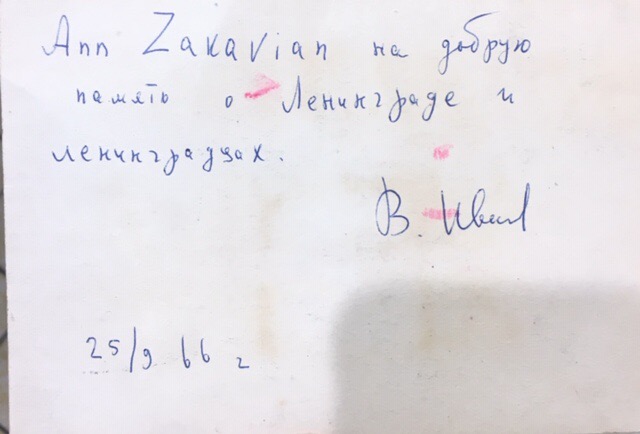 Ann Zakavian на добрую
память о Ленинграде и
ленинградцах.
В.
25/9 66 г